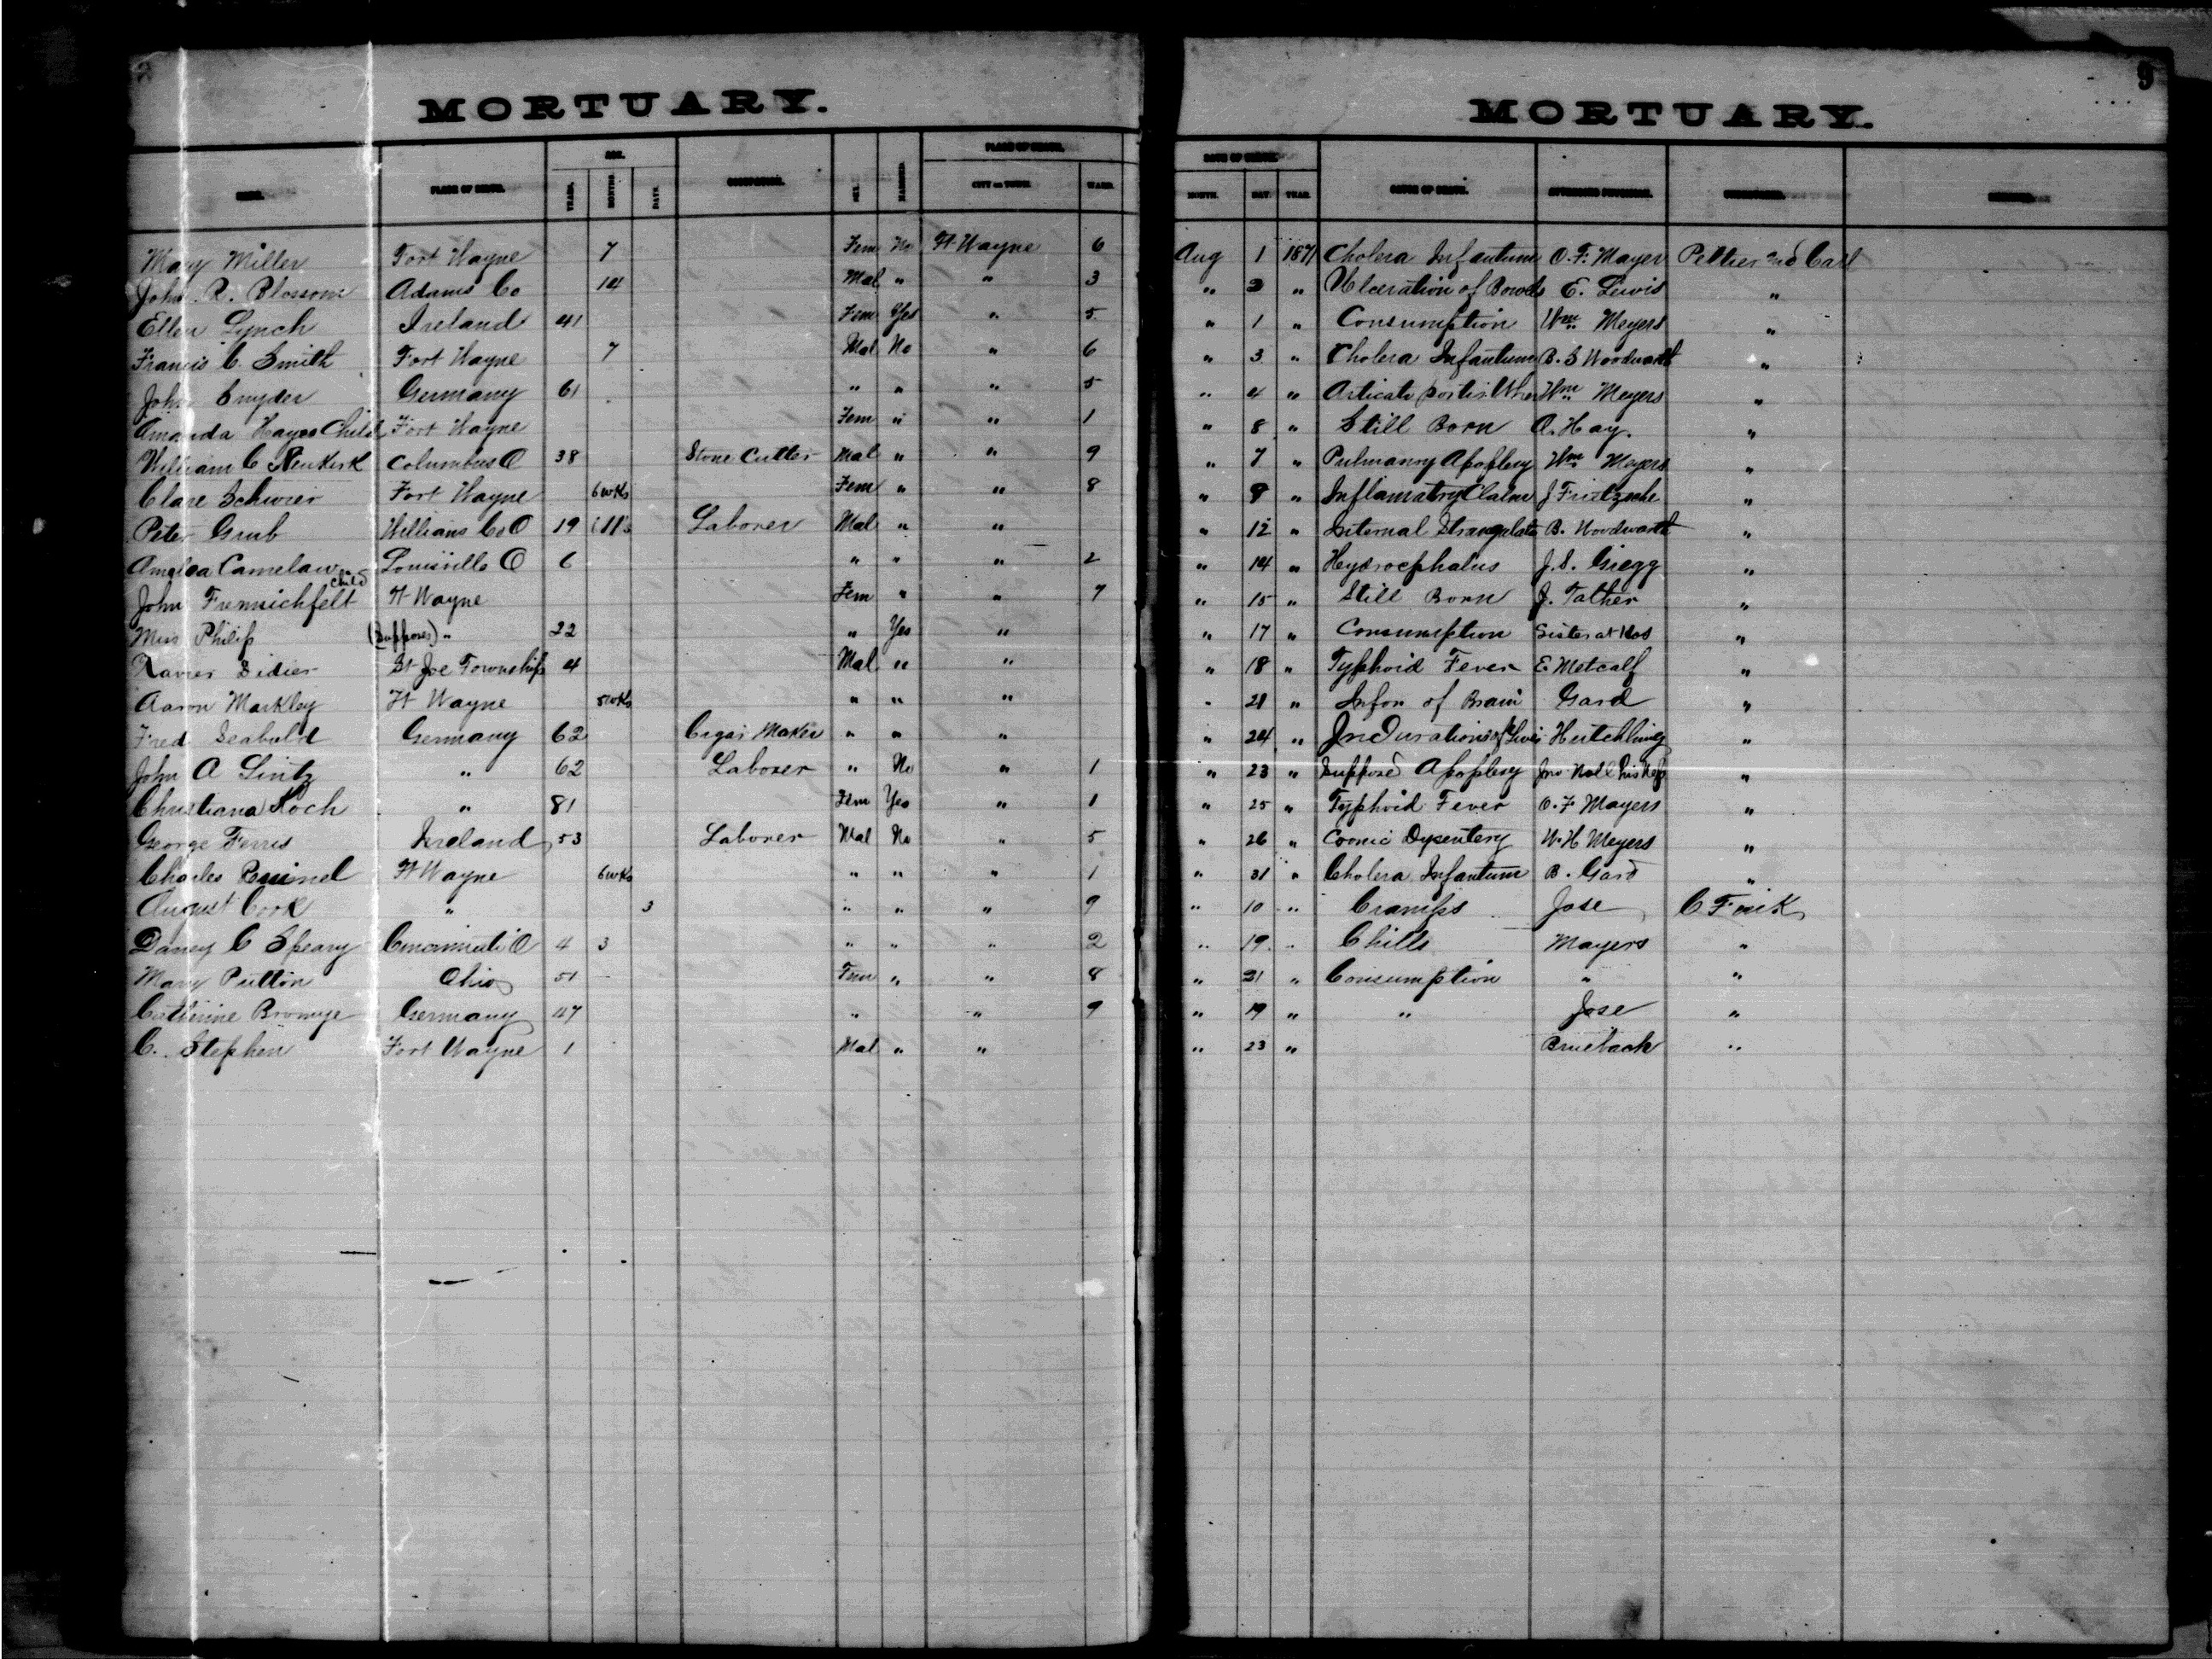 MORTUARY.
MORTUARY.
9
AGE.
PLACE OF DEATH.
DATE OF DEATH.
NAME. PLACE OF BIRTH. YEARS. MONTHS. DAYS. OCCUPATION. SEX. MARRIED. CITY OR TOWN. WARD. MONTH. DAY. YEAR. CAUSE OF DEATH. ATTENDING PHYSICIAN.
Mary Miller Fort Wayne 7 Fem No Ft Wayne 6 Aug 1 1871 Cholera Infantum O. F. Mayer Peltier
John R. Blossom Adams Co 14 Mal " " 3 " 2 " Ulceration of Bowels E. Lewis "
Ellen Lynch Ireland 41 Fem Yes " 5 " 1 " Consumption Wm Meyers "
Francis C. Smith Fort Wayne 7 Mal No " 6 " 3 " Cholera Infantum B. S Woodworth "
John Snyder Germany 61 " " " 5 " 4 " Wm Meyers "
Amanda Hayes Child Fort Wayne Fem " " 1 " 8 " Still Born A. Hay. "
William C Neukirk Columbus O 38 Stone Cutter Mal " " 9 " 7 " Pulmanry Apoplexy Wm Meyers "
Clare Fort Wayne 6 wks Fem " " 8 " 8 " J "
Peter Grub Williams Co O 19 Laborer Mal " " " 12 " Internal B. Woodworth "
Camelaw Louisville O 6 " " " 2 " 14 " Hydrocephalus J. S. Gregg "
child
John Ft Wayne Fem " " 7 " 15 " Still Born J. Tather "
Miss Philip (Supposed) " 22 " Yes " " 17 " Consumption Sister at Hos "
Xavier Didier St Joe Township 4 Mal " " " 18 " Typhoid Fever E Metcalf "
Aaron Markley Ft Wayne 5 wks " " " " 21 " of Brain Gard "
Fred Seabold Germany 62 Cigar Maker " " " " 24 " Indurations of Liver "
John A Lintz " 62 Laborer " No " 1 " 23 " Supposed Apoplexy "
Christiana Koch " 81 Fem Yes " 1 " 25 " Typhoid Fever O. F Mayers "
George Ferris Ireland 53 Laborer Mal No " 5 " 26 " Cronic Dysentery W. H Meyers "
Charles Ft Wayne 6 wks " " " 1 " 31 " Cholera Infantum B. Gard "
August Cook " 3 " " " 9 " 10 " Cramps Jose C
C Speary Cincinnati O 4 3 " " " 2 " 19 " Chills Mayers "
Mary Putton Ohio 51 Fem " " 8 " 21 " Consumption " "
Catherine Germany 47 " " " 9 " 19 " " Jose "
C. Stephen Fort Wayne 1 Mal " " " 23 " Brueback "